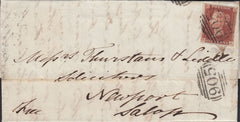 Messrs Thurstans & Liddle
Solicitors
Newport
Salop
Free
905